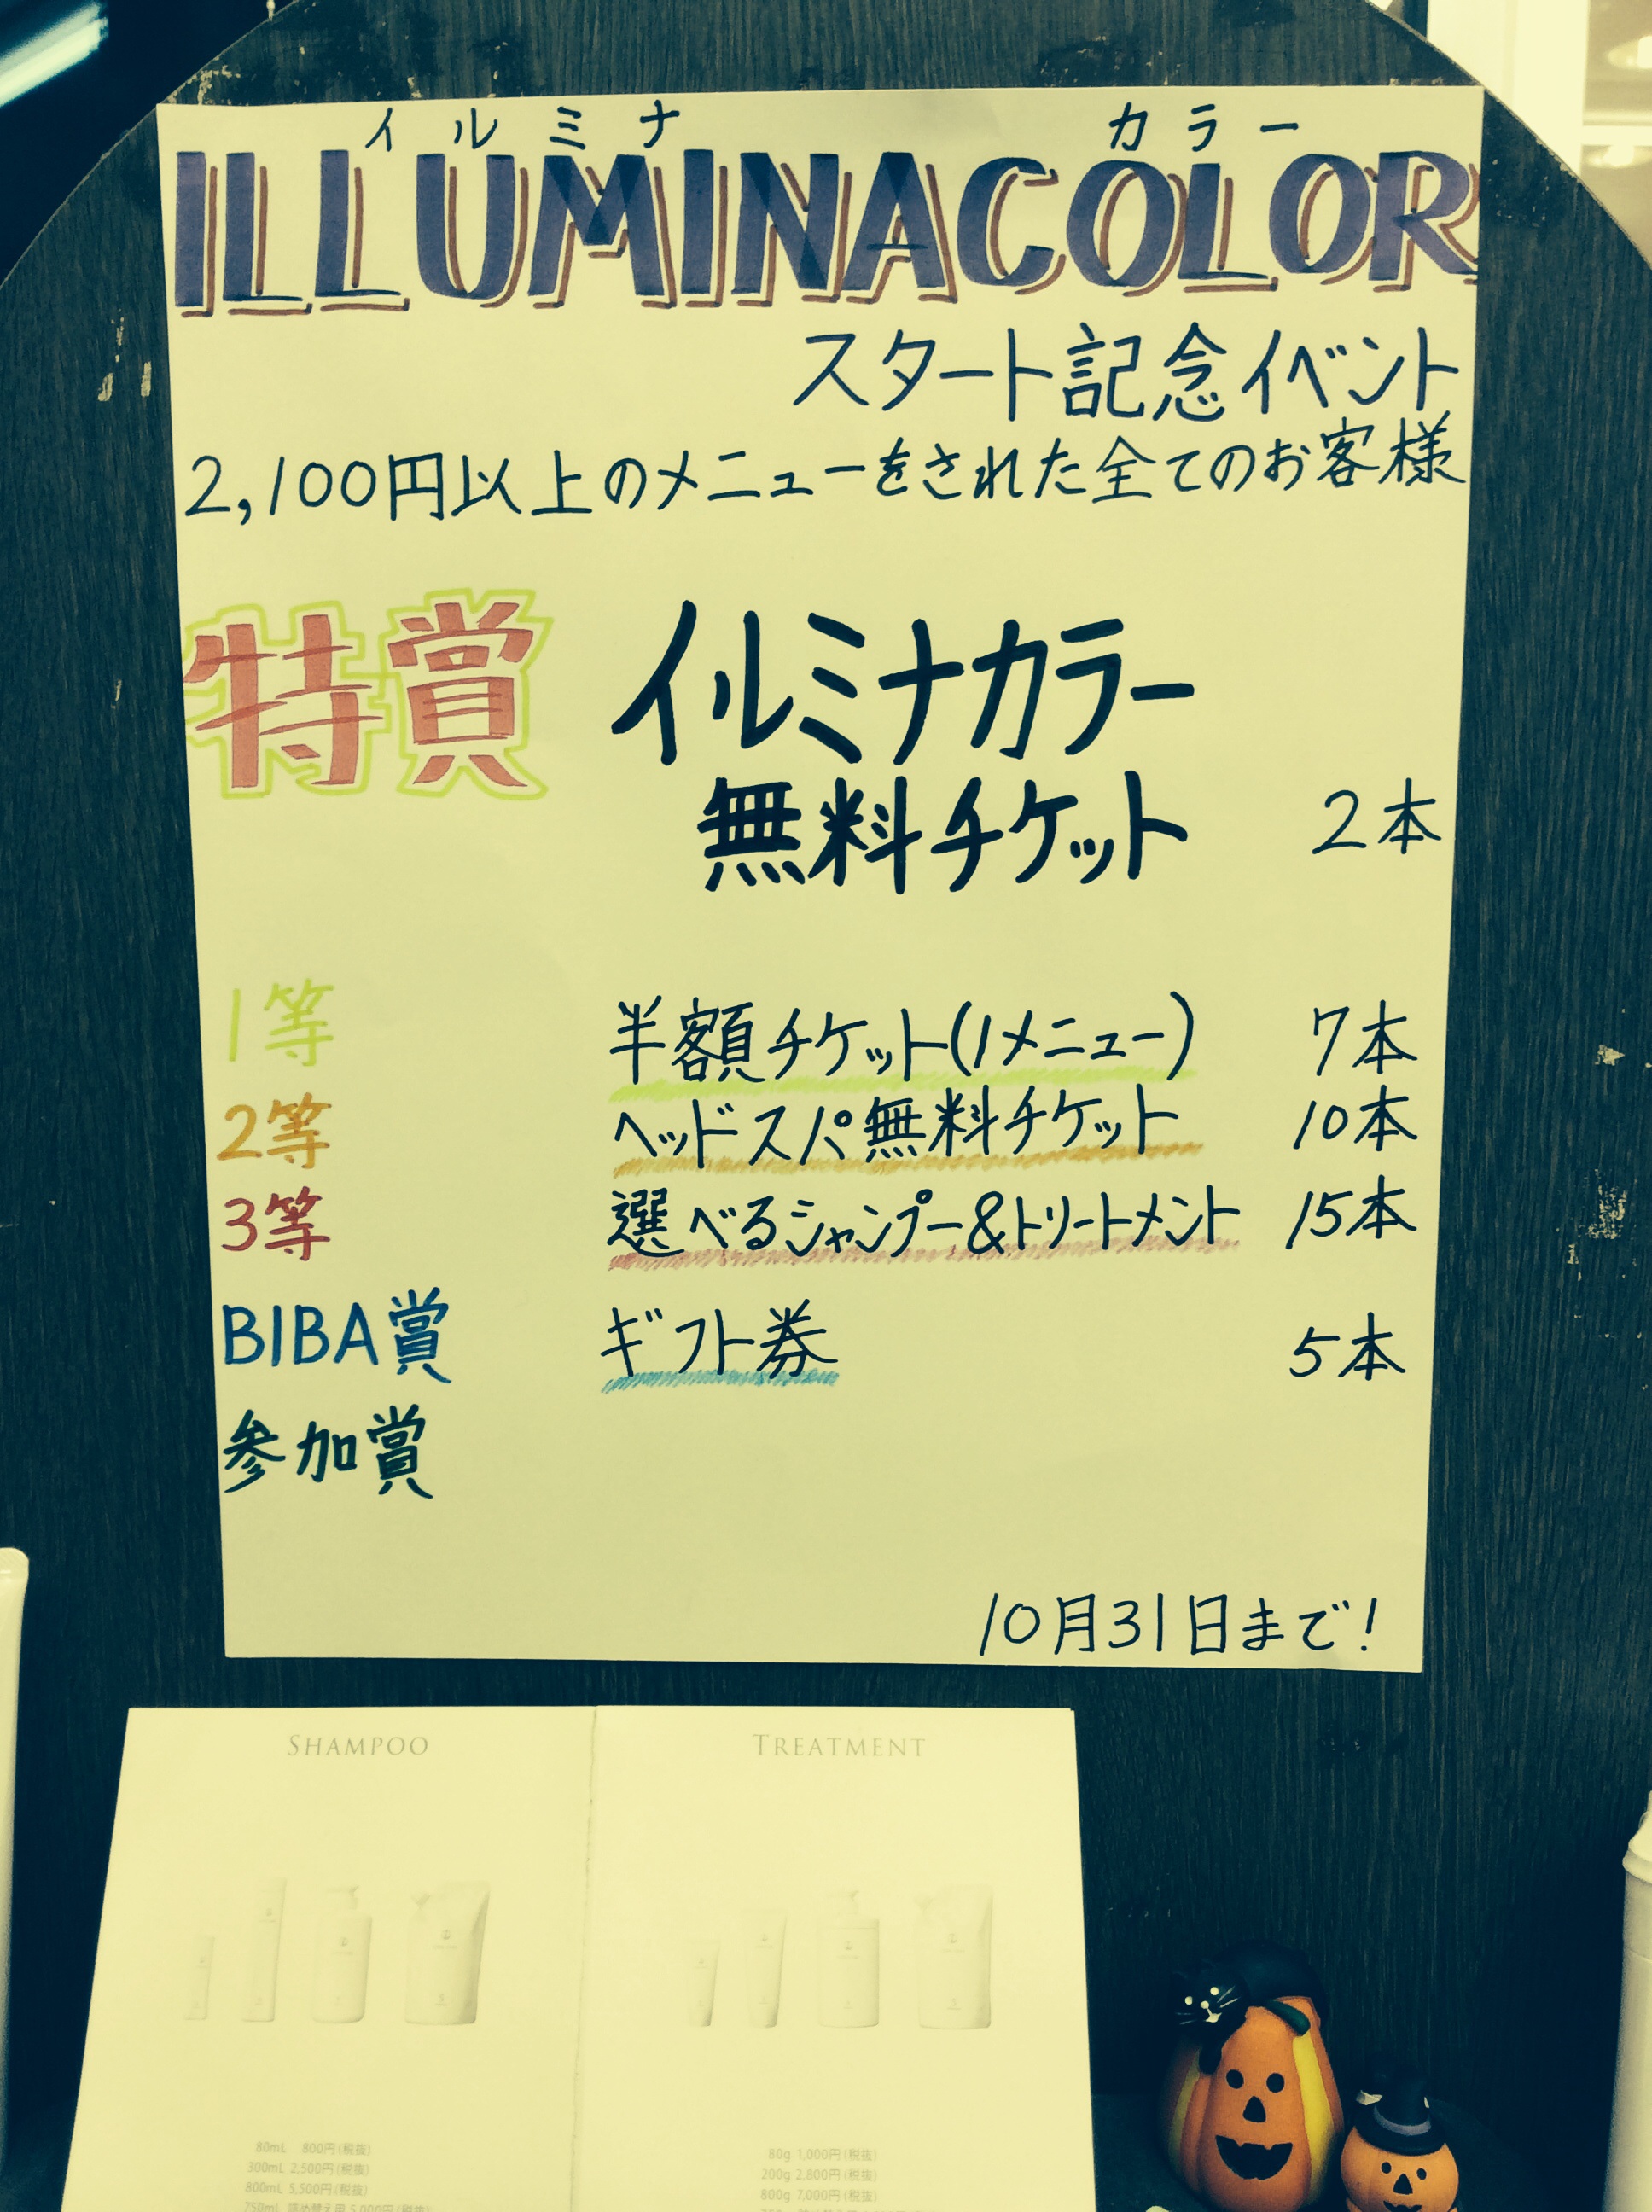 イルミナ カラー
ILLUMINACOLOR
スタート記念イベント
2,100円以上のメニューをされた全てのお客様
特賞 イルミナカラー
無料チケット 2本
1等 半額チケット(1メニュー) 7本
2等 ヘッドスパ無料チケット 10本
3等 選べるシャンプー&トリートメント 15本
BIBA賞 ギフト券 5本
参加賞
10月31日まで!
SHAMPOO
80mL 800円(税抜)
300mL 2,500円(税抜)
800mL 5,500円(税抜)
750mL 詰め替え用 5,000円(税抜)
TREATMENT
80g 1,000円(税抜)
200g 2,800円(税抜)
800g 7,000円(税抜)